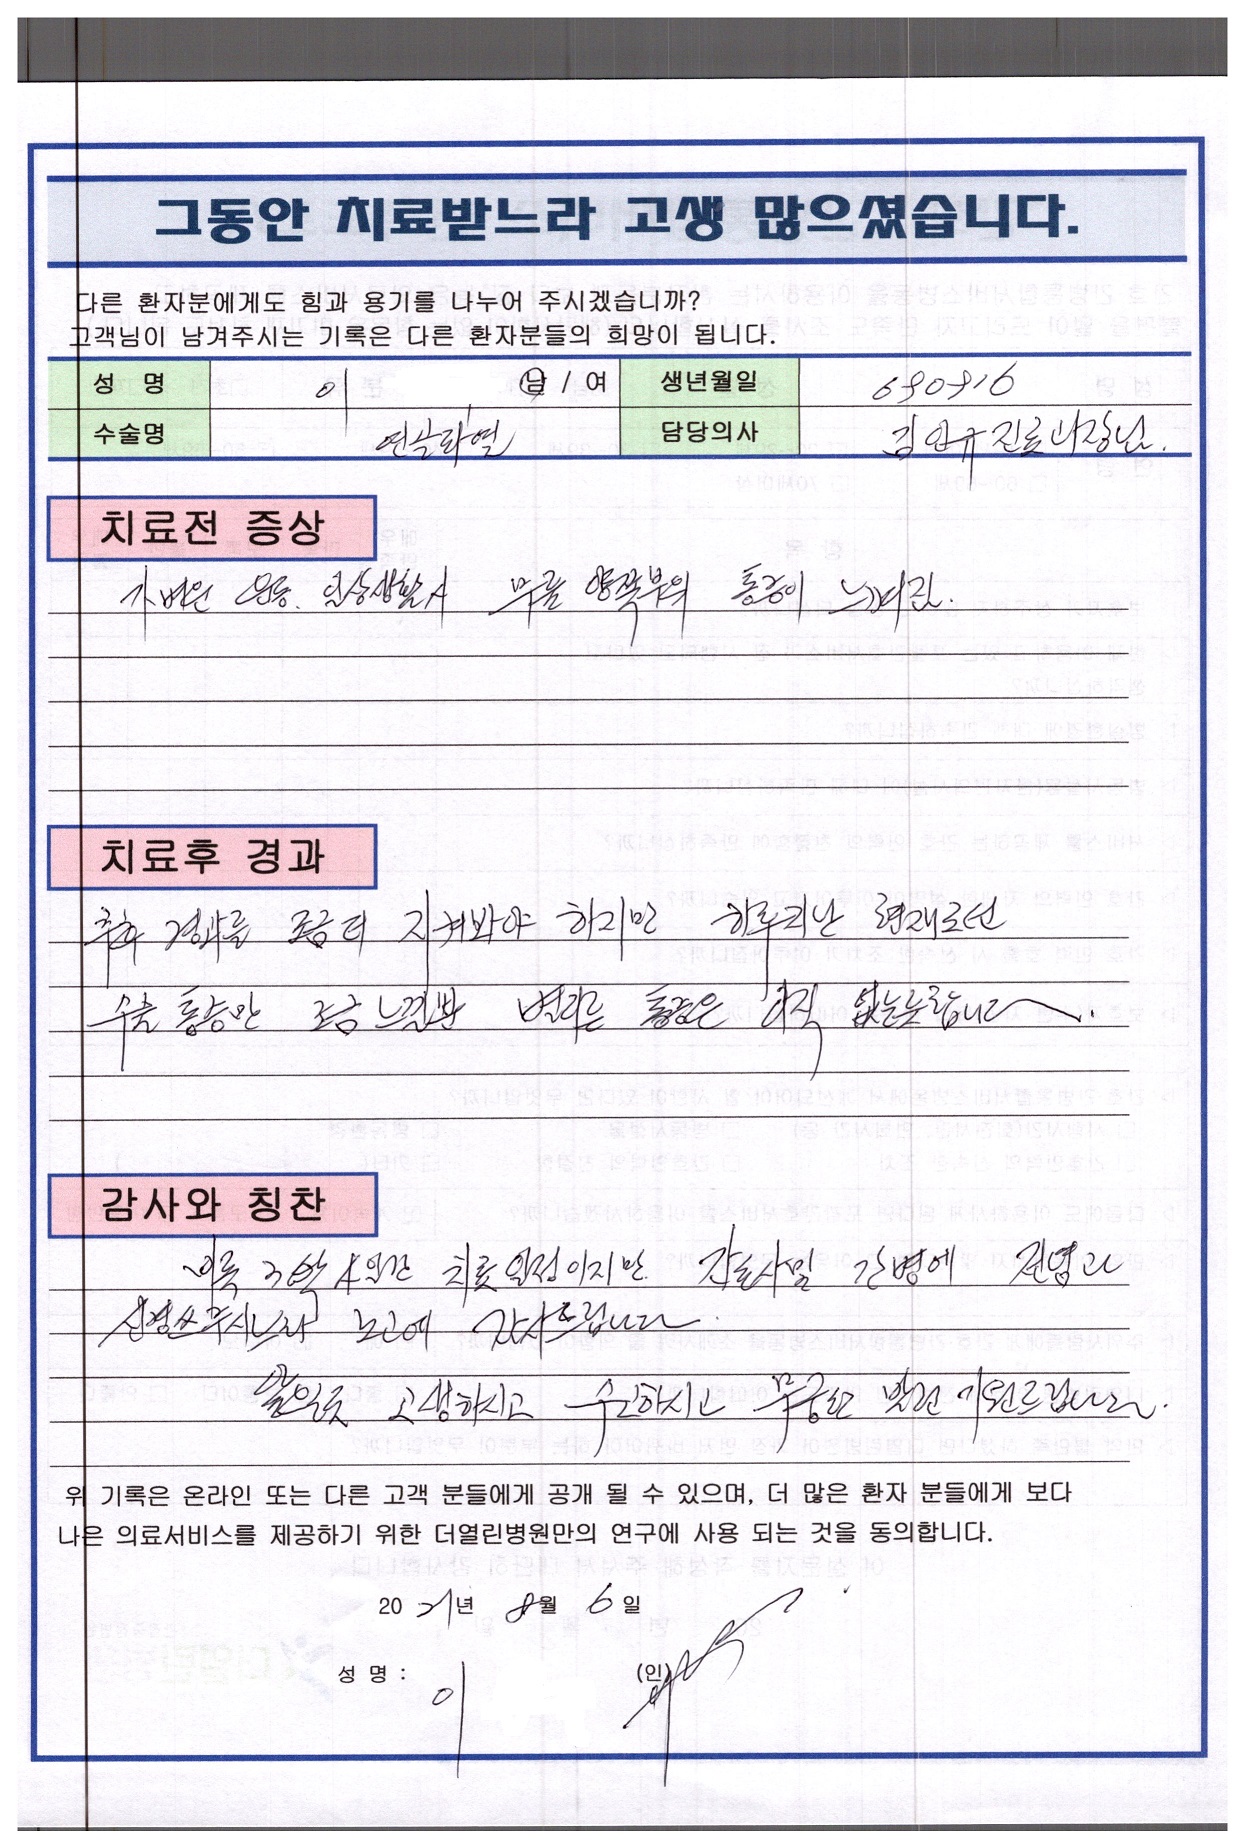 그동안 치료받느라 고생 많으셨습니다.
다른 환자분에게도 힘과 용기를 나누어 주시겠습니까?
고객님이 남겨주시는 기록은 다른 환자분들의 희망이 됩니다.
성 명 이 남 / 여 생년월일 690816
수술명 연골파열 담당의사 김인규 진료과장님.
치료전 증상
가벼운 운동. 일상생활시 무릎 양쪽부위 통증이 느껴짐.
치료후 경과
추후 경과를 조금 더 지켜봐야 하지만 하루지난 현재로선
수술 통증만 조금 느낄뿐 별다른 통증은 아직 없는듯합니다.
감사와 칭찬
비록 3박 4일간 치료 일정이지만 간호사및 간병에
신경쓰주시느라 노고에 감사드립니다.
고생하시고 수고하시고 무궁한 발전 기원드립니다.
위 기록은 온라인 또는 다른 고객 분들에게 공개 될 수 있으며, 더 많은 환자 분들에게 보다
나은 의료서비스를 제공하기 위한 더열린병원만의 연구에 사용 되는 것을 동의합니다.
2021년 8월 6일
성 명 : 이 (인)